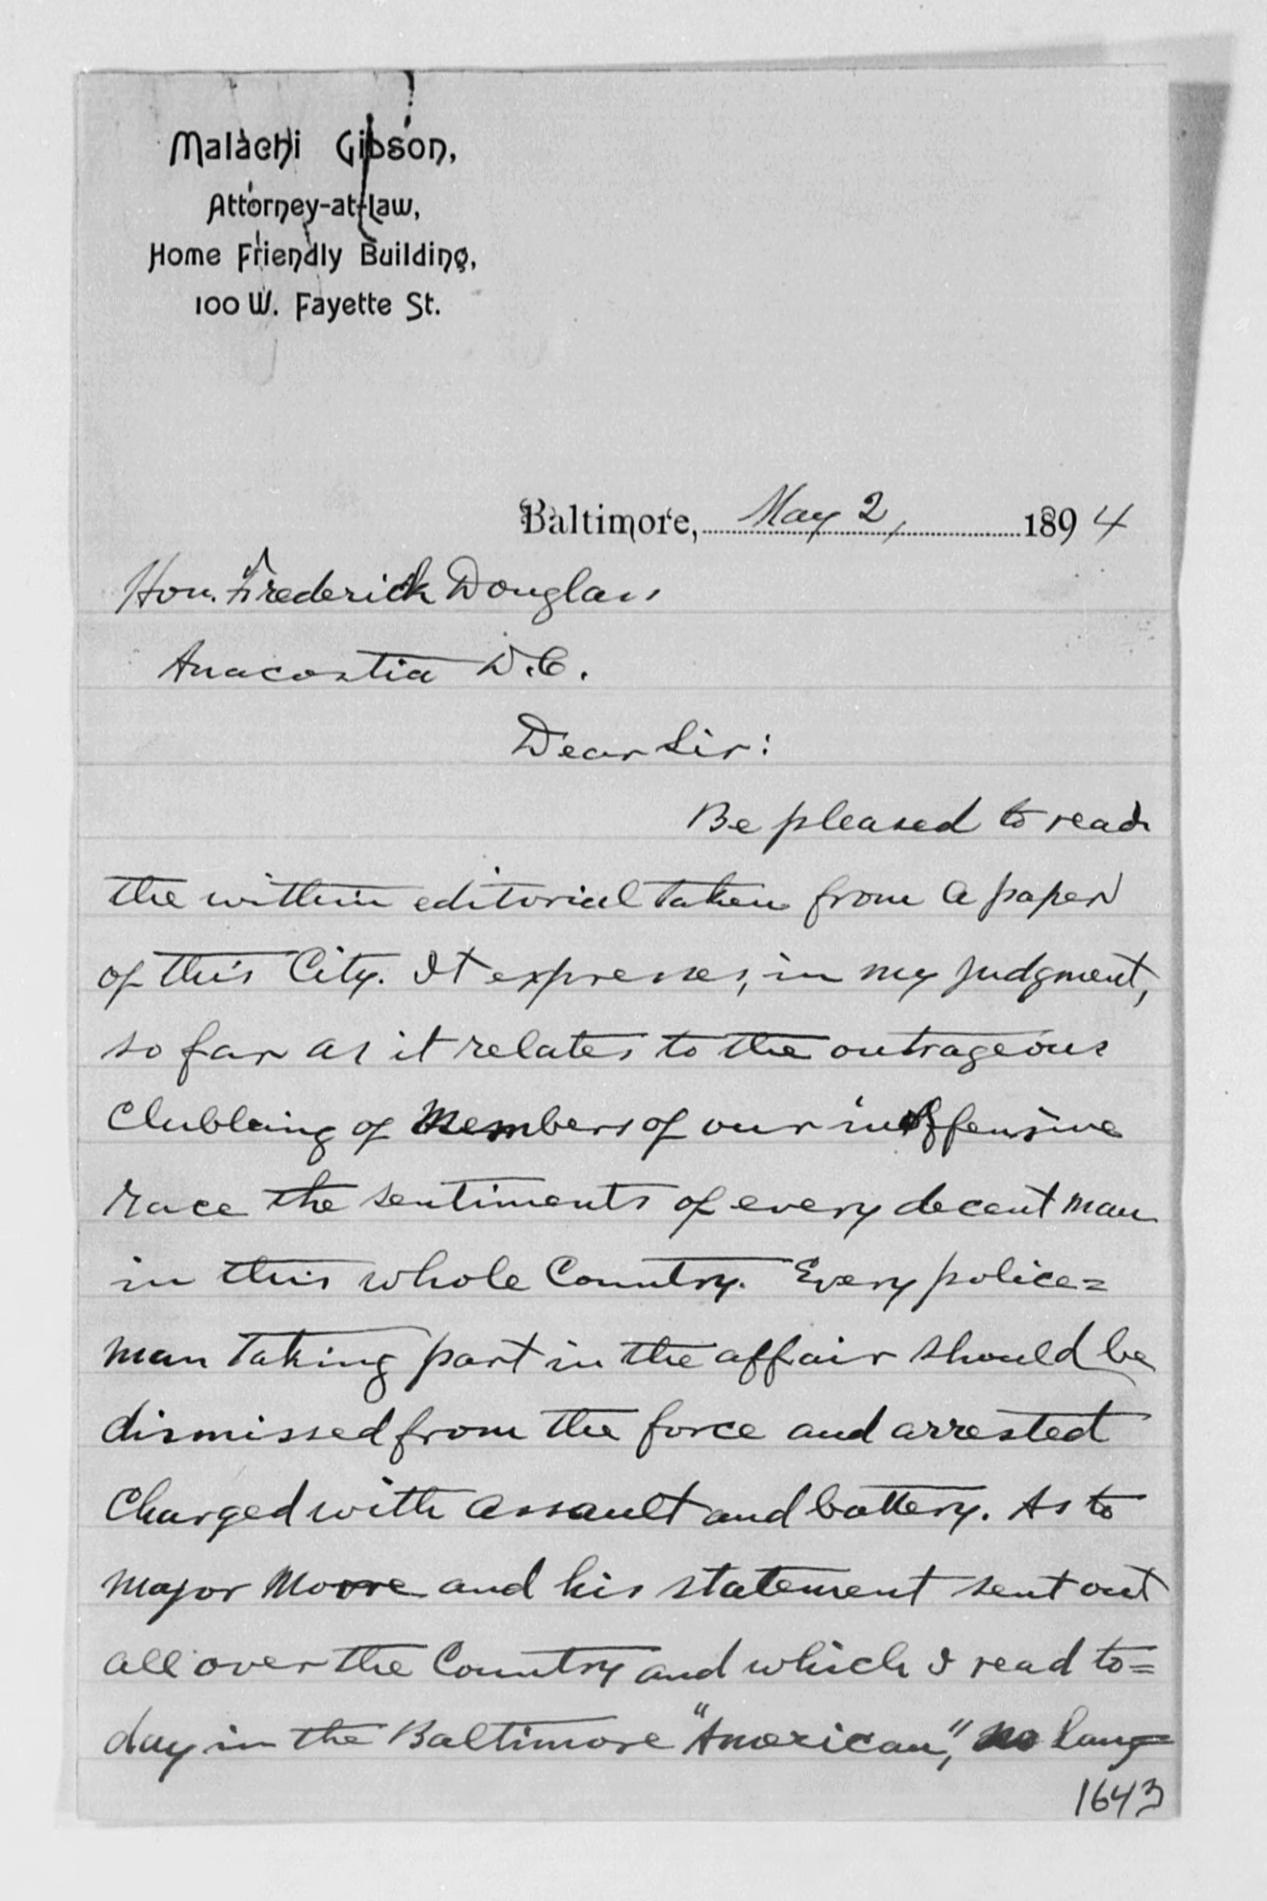 Malachi Gibson,
Attorney-at-Law,
Home Friendly Building,
100 W. Fayette St.
Baltimore, May 2, 1894
Hon. Frederick Douglass
Anacostia D.C.
Dear Sir:
Be pleased to read
the within editorial taken from a paper
of this City. It expresses, in my judgment,
so far as it relates to the outrageous
Clubbing of Members of our inoffensive
race the sentiments of every decent man
in this whole Country. Every police=
man taking part in the affair should be
dismissed from the force and arrested
Charged with assault and battery. As to
Major Moore and his statement sent out
all over the Country and which I read to=
day in the Baltimore "American", no lang=
1643